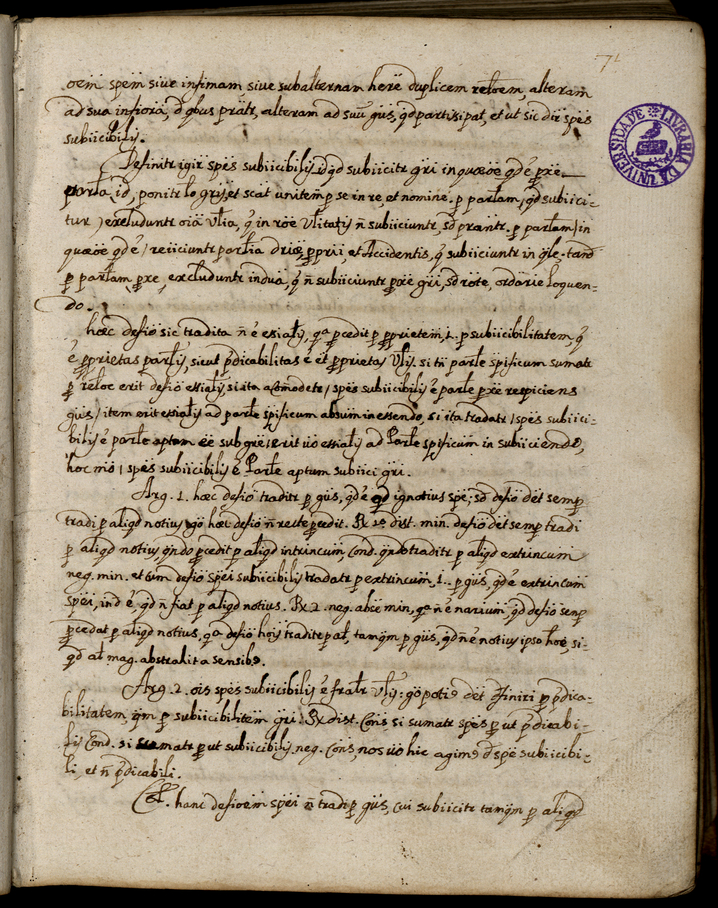 71
oem̃ spem̃ siue infimam siue subalternam herẽ duplicem relõem, alteram
ad sua infiora, d qbus prãtr, alteram ad suũ gus, qd partisipat, et ut sic dir̃ spẽs
subiicibilis.
Definitr igir spẽs subiicibilis, id qd subiicitr gri in quæõe qd ẽ p̃xẽ
parla id, ponitr lo gris, et scat unitem p se in re, et nomine. p parlam, qd subiici-
tur, excluduntr oiã Vlia, q̃ in rõe Vlitatis ñ subiiciuntr, sd prãntr. p parlam, in
quæõe qd ẽ, reiiciuntr parlia driæ, p̃prii, et Accidentis, q̃ subiiciuntr in qle. tand
p parlam p̃xe, excluduntr indiua, q̃ ñ subiiciuntr p̃xe gri, sd rõte, ordarie loquen-
do.
hæc defiõ sic tradita ñ ẽ eẽssialis, qa p̃cedit p p̃prietem, i. p subiicibilitatem q̃
ẽ p̃prietas parlis, sicut p̃dicabilitas ẽ et p̃prietas Vlis. si tñ parle spificum sumatr
p reloe erit defiõ essialis, si ita acmodetr, spẽs subiicibilis ẽ parle p̃xe respiciens
gus, item erit essialis ad parle spificum absum in essendo, si ita tradatr, spẽs subiici-
bilis ẽ parle aptam eẽ sub grẽ; erit uo essialis ad Parle spificum in subiiciendo,
hoc mõ, spẽs subiicibilis ẽ Parle aptum subiici gri.
Arg. 1. hæc defiõ traditr p gus, qd ẽ qd ignotius spẽ; sd defiõ det semp
tradi p aliqd notius, go hæc defiõ ñ recte p̃cedit. Rx 1o dist. min. defiõ det semp tradi
p aliqd notius qndo p̃cedit p aliqd intrincum, Cond. qndo traditr p aliqd extrincum
neg. min. et cum defiõ spei subiicibilis tradatr p extrincum, i. p gus, qd ẽ extrincum
spei, ind ẽ, qd ñ fiat p aliqd notius. Rx 2. neg. absce min, qa ñ ẽ narium, qd defiõ semp
p̃cedat p aliqd notius, qa defiõ hois traditr p al, tanqm p gus, qd ñ ẽ notius ipso hoẽ, si-
qd al mag. abstrahit a sensibs.
Arg. 2. ois spẽs subiicibilis ẽ fralr Vlis: go poti9 det Finiri p p̃dica-
bilitatem, qm p subiicibilitem gri. Rx dist. Cons, si sumatr spẽs p ut p̃dicabi-
lis Cond. si sumatr p ut subiicibilis neg. Cons, nos uo hic agim9 d spẽ subiicibi-
li, et ñ p̃dicabili.
hanc defioem spei ñ tradi p gus, cui subiicitr tanqm p aliqd